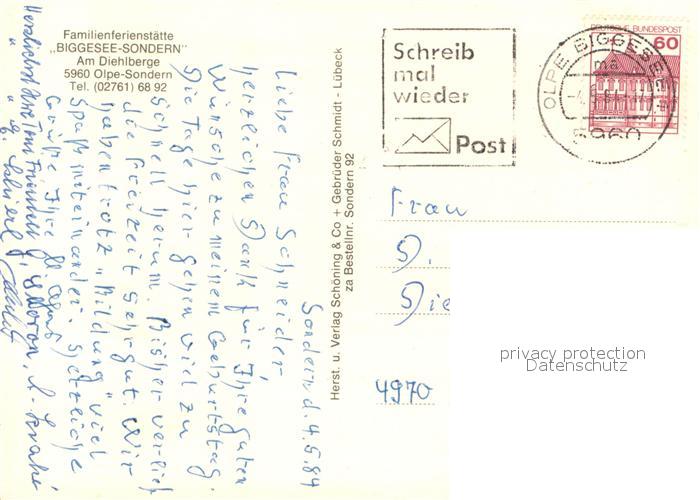 Familienferienstätte
„BIGGESEE-SONDERN"
Am Diehlberge
5960 Olpe-Sondern
Tel. (02761) 68 92
Sondern d. 4.5.84
Liebe Frau Schneider,
herzlichen Dank für Ihre guten
Wünsche zu meinem Geburtstag.
Die Tage hier gehen viel zu
schnell herum. Bisher verlief
die Freizeit sehr gut. Wir
haben trotz „Bildung" viel
Spaß miteinander. Herzliche
Grüße Ihre
Herzlichst Ihre
Herst. u. Verlag Schöning & Co + Gebrüder Schmidt - Lübeck
za Bestellnr. Sondern 92
Schreib
mal
wieder
Post
DEUTSCHE BUNDESPOST
60
OLPE BIGGESEE
5960
Frau
S.
Die
4970
privacy protection
Datenschutz